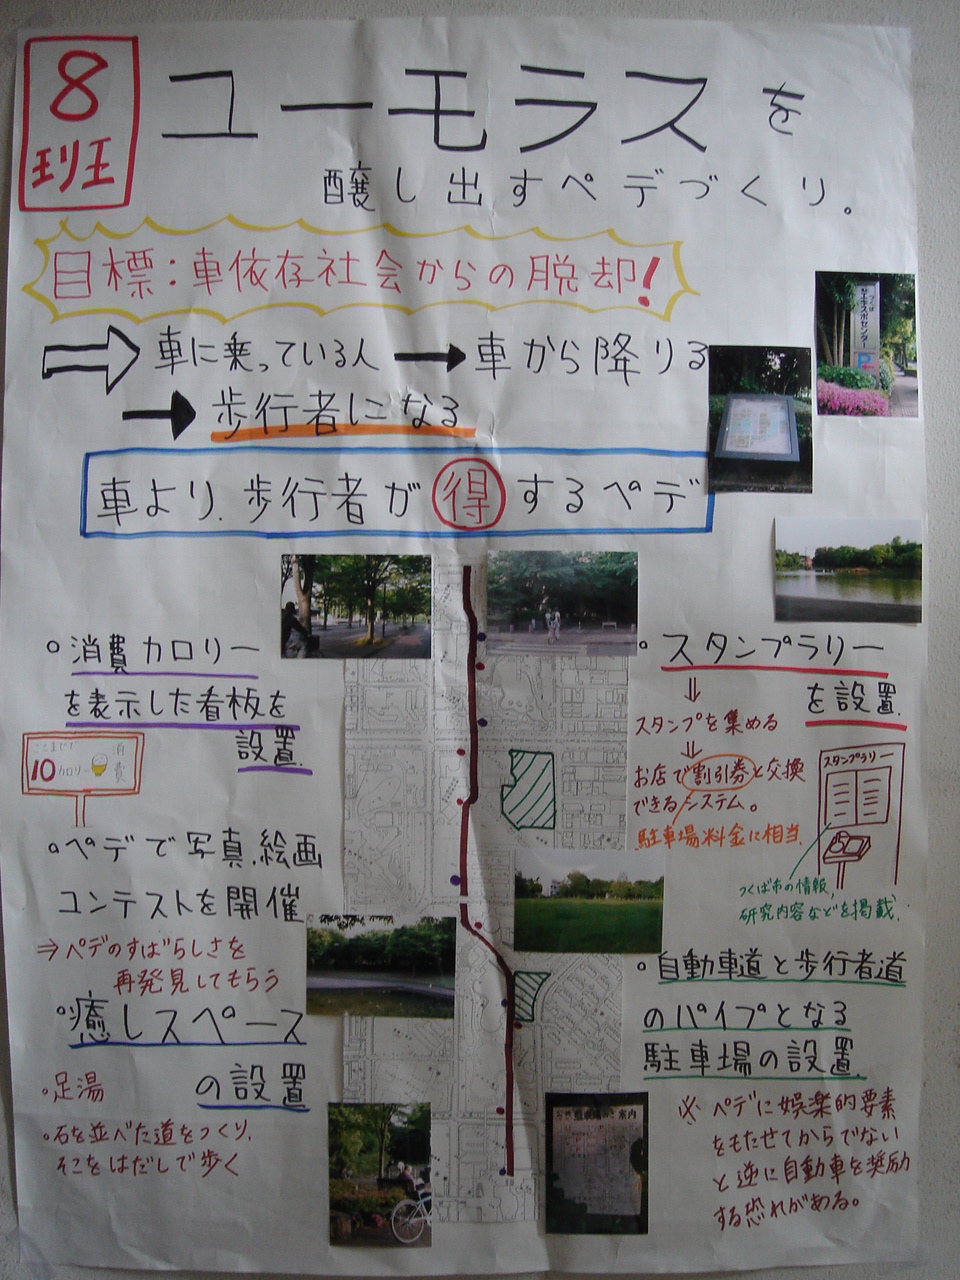 8
班
ユーモラスを
醸し出すペデづくり。
目標:車依存社会からの脱却!
車に乗っている人 → 車から降りる
→ 歩行者になる
車より、歩行者が得するペデ
つくば
エキスポセンター
P
・消費カロリー
を表示した看板を
設置
ここまでで
10カロリー
消費
・ペデで写真、絵画
コンテストを開催
⇒ ペデのすばらしさを
再発見してもらう
・癒しスペース
の設置
・足湯
・石を並べた道をつくり、
そこをはだしで歩く
・スタンプラリー
を設置
⇓
スタンプを集める
⇓
お店で割引券と交換
できるシステム。
駐車場料金に相当
スタンプラリー
つくば市の情報、
研究内容などを掲載。
・自動車道と歩行者道
のパイプとなる
駐車場の設置
※ ペデに娯楽的要素
をもたせてからでない
と逆に自動車を奨励
する恐れがある。